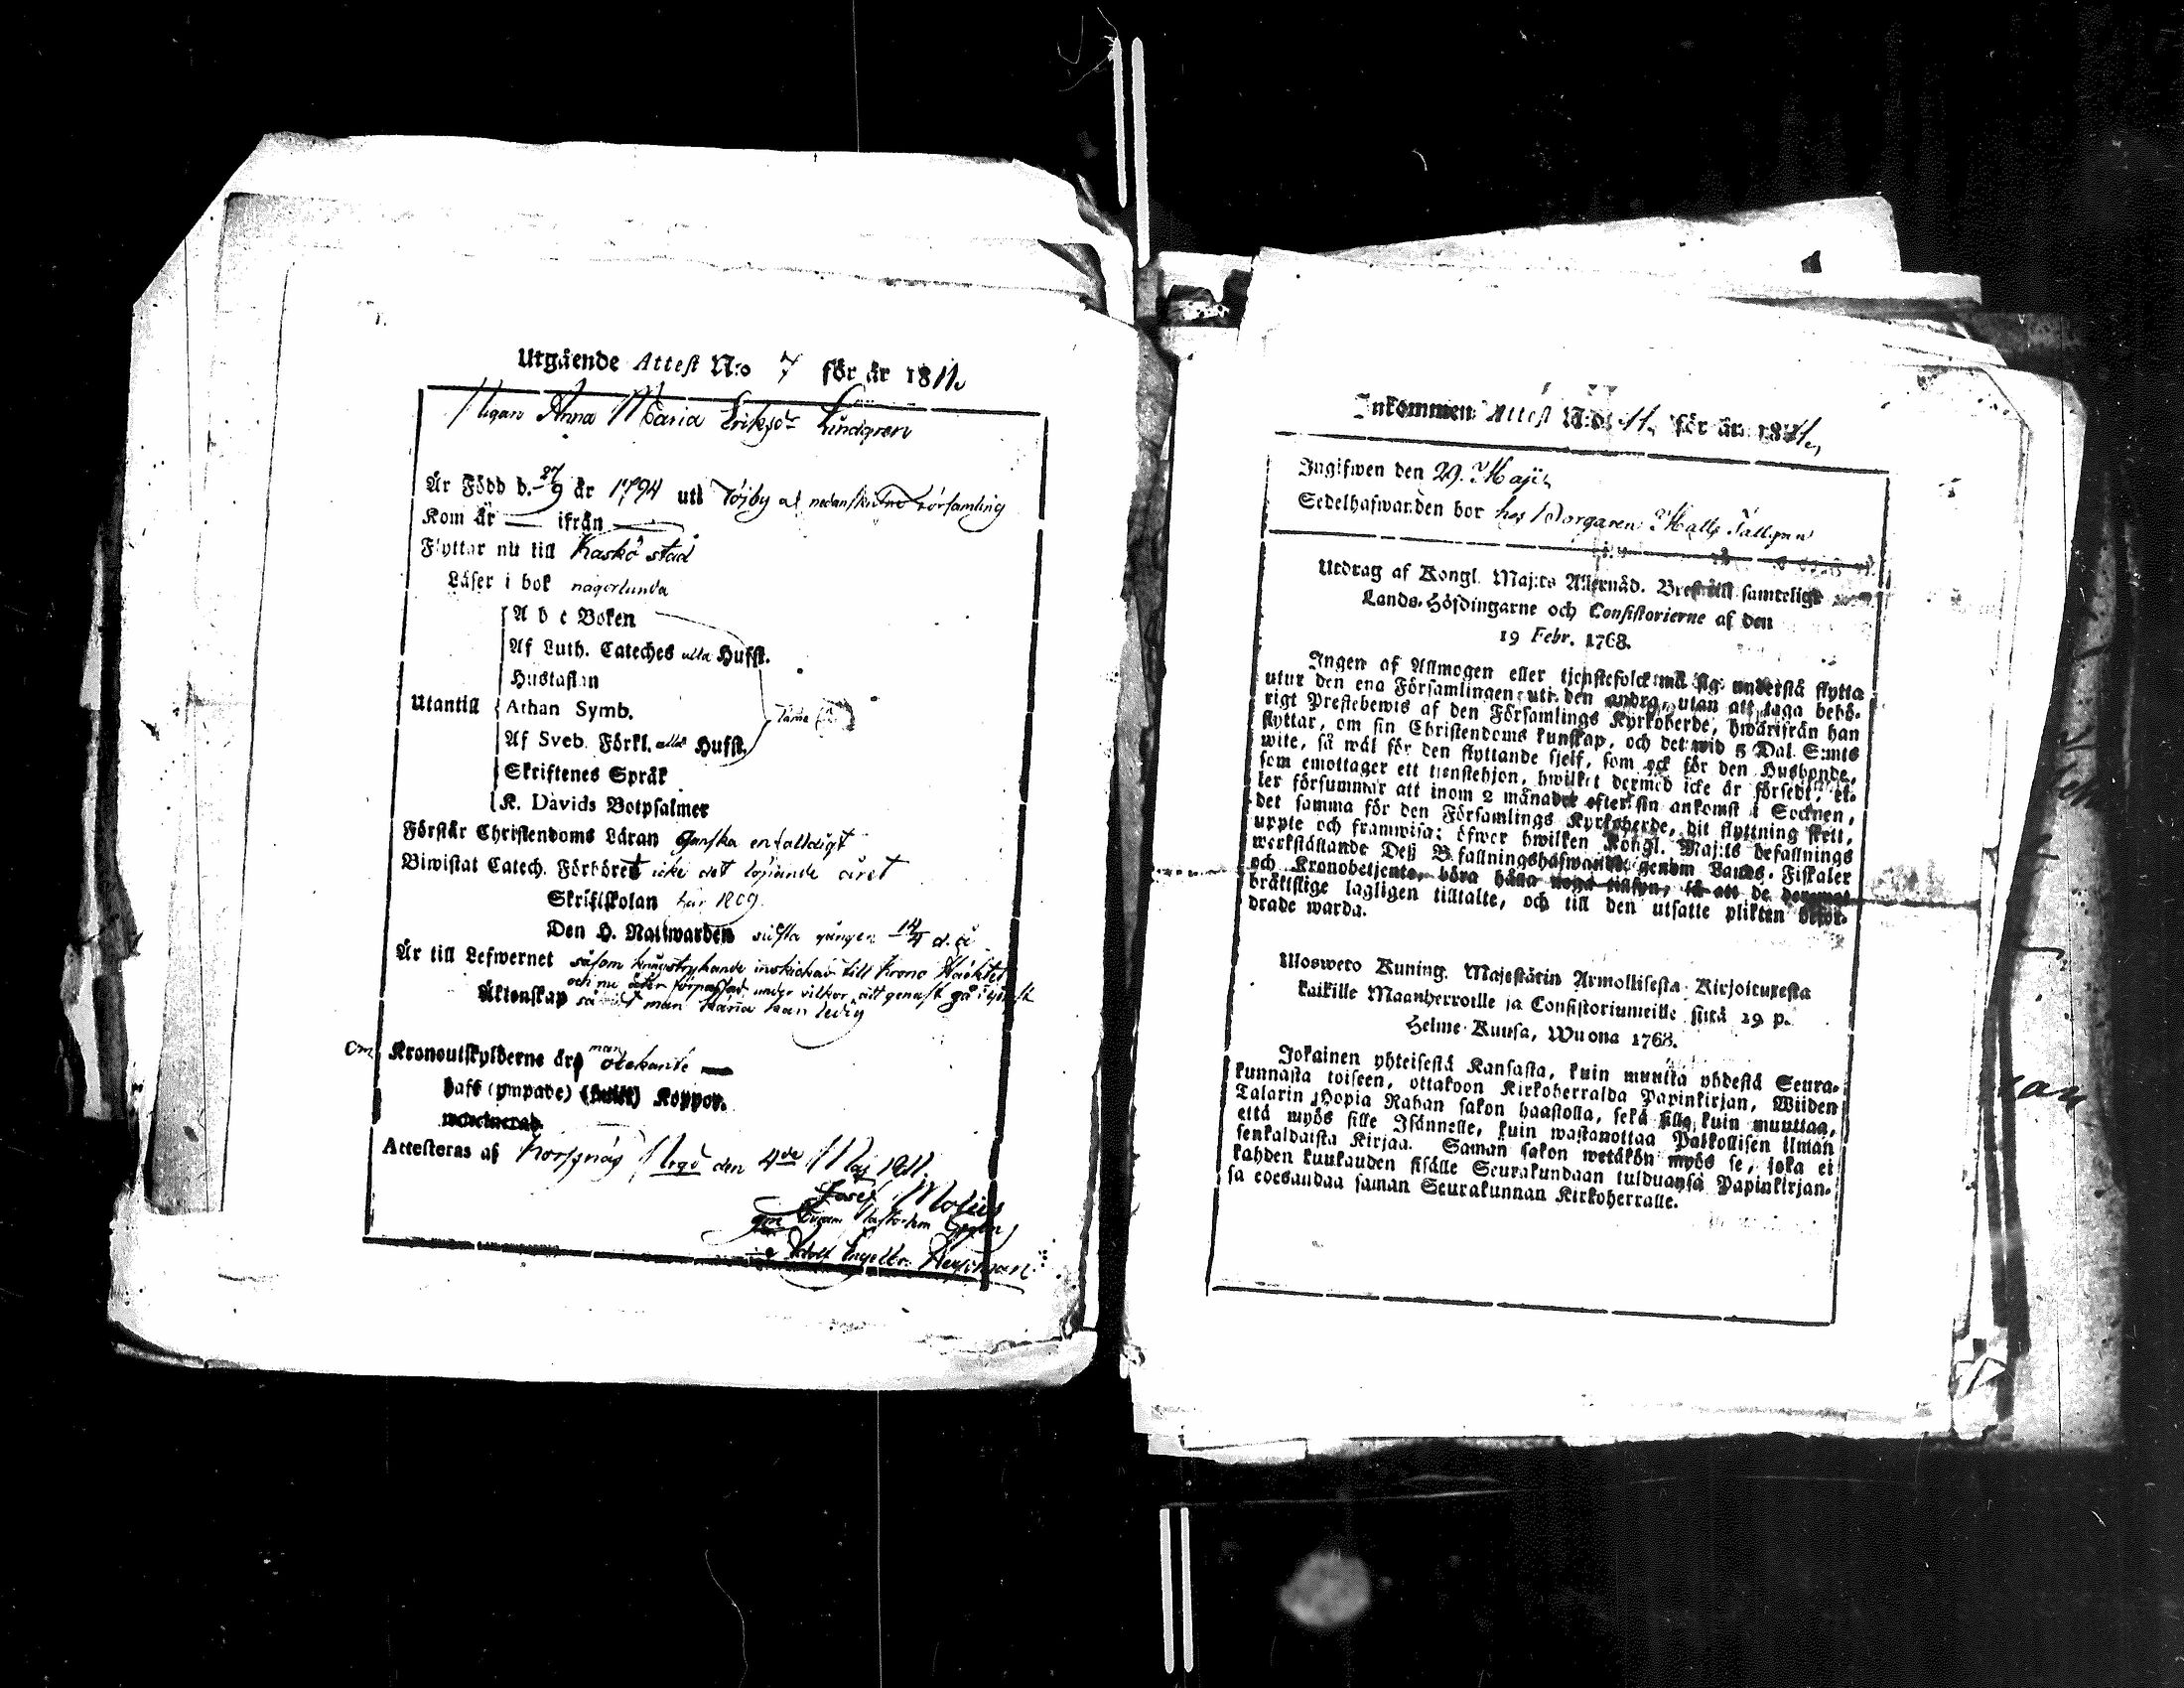 Utgående Attest N:o 7 för år 1811.
Pigan Anna Maria Eriksdr Lindgren
Är Född d. 27/9 år 1794 uti Töjby af nedanskrefne Församling
Kom år — ifrån —
Flyttar nu till Kaskö stad
Läser i bok någorlunda
A b c Boken
Af Luth. Cateches alla Hufst.
Hustaflan
Utantill
Athan Symb.
Af Sveb. Förkl. alla Hufst.
Skriftenes Språk
K. Davids Botpsalmer
Förstår Christendoms Läran ganska enfaldigt
Biwistat Catech. Förhöret icke det löpande året
Skriftskolan här 1809.
Den H. Nattwarden sista gången d. å
Är till Lefwernet såsom kringstrykande inskickad till Krono Häcktet
och nu åter förpassad under vilkor att genast gå i tjenst
Äktenskap så vidt man känna kan ledig
Om Kronoutskylderne är man obekante —
haft (ympade) Koppor.
Attesteras af Korsnäs Prgd den 4de Maj 1811.
Josef Molius
Adolf Engelbr. Heurman
Inkommen Attest N:o 11. för år 1811.
Ingifwen den 29. Maji
Sedelhafwanden bor hos Borgaren Matts Tallgren
Utdrag af Kongl. Maj:ts Allernåd. Bref till samtelige
Lands-Höfdingarne och Consistorierne af den
19 Febr. 1768.
Ingen af Allmogen eller tjenstefolck må sig understå flytta
utur den ena Församlingen uti den andra, utan att taga behö-
rigt Prestebewis af den Församlings Kyrkoherde, hwarifrån han
flyttar, om sin Christendoms kunskap, och det wid 5 Dal. S:mts
wite, så wäl för den flyttande sjelf, som ock för den Husbonde,
som emottager ett tienstehjon, hwilket dermed icke är försedt, el-
ler försummar att inom 2 månader efter sin ankomst i Socknen,
det samma för den Församlings Kyrkoherde, dit flyttning skett,
uppte och framwisa; öfwer hwilken Kongl. Maj:ts befallnings
werkställande Deß Befallningshafwande genom Lands-Fiskaler
och Kronobetjente, böra hålla noga tillsyn, så att de deremot
bräkslige lagligen tilltalte, och till den utsatte plikten befor-
drade warda.
Ulosweto Kuning. Majestätin Armollisesta Kirjoituxesta
kaikille Maanherroille ja Consistoriumeille siitä 19 p.
Helme-Kuusa, Wuona 1768.
Jokainen yhteisestä Kansasta, kuin muutta yhdestä Seura-
kunnasta toiseen, ottakoon Kirkoherralda Papinkirjan, Wiiden
Talarin Hopia Rahan sakon haastolla, sekä sille kuin muuttaa,
että myös sille Isännelle, kuin wastanottaa Palkollisen ilman
senkaldaista Kirjaa. Saman sakon wetäkön myös se, joka ei
kahden kuukauden sisälle Seurakundaan tulduansa Papinkirjan-
sa edesandaa saman Seurakunnan Kirkoherralle.